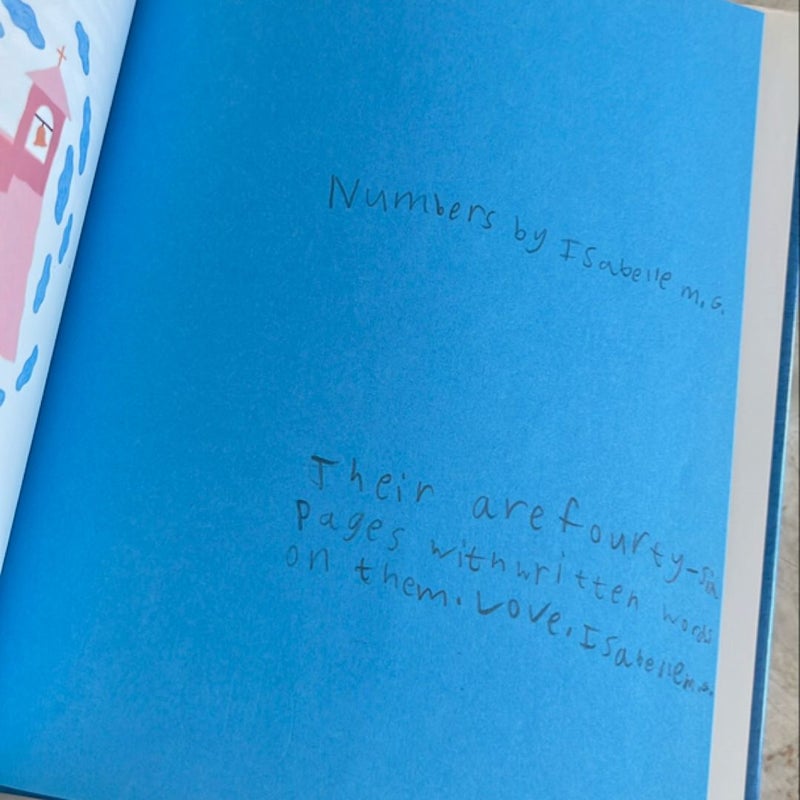 Numbers by Isabelle m.G.
Their are fourty-six
pages with written words
on them. Love, Isabelle m.G.